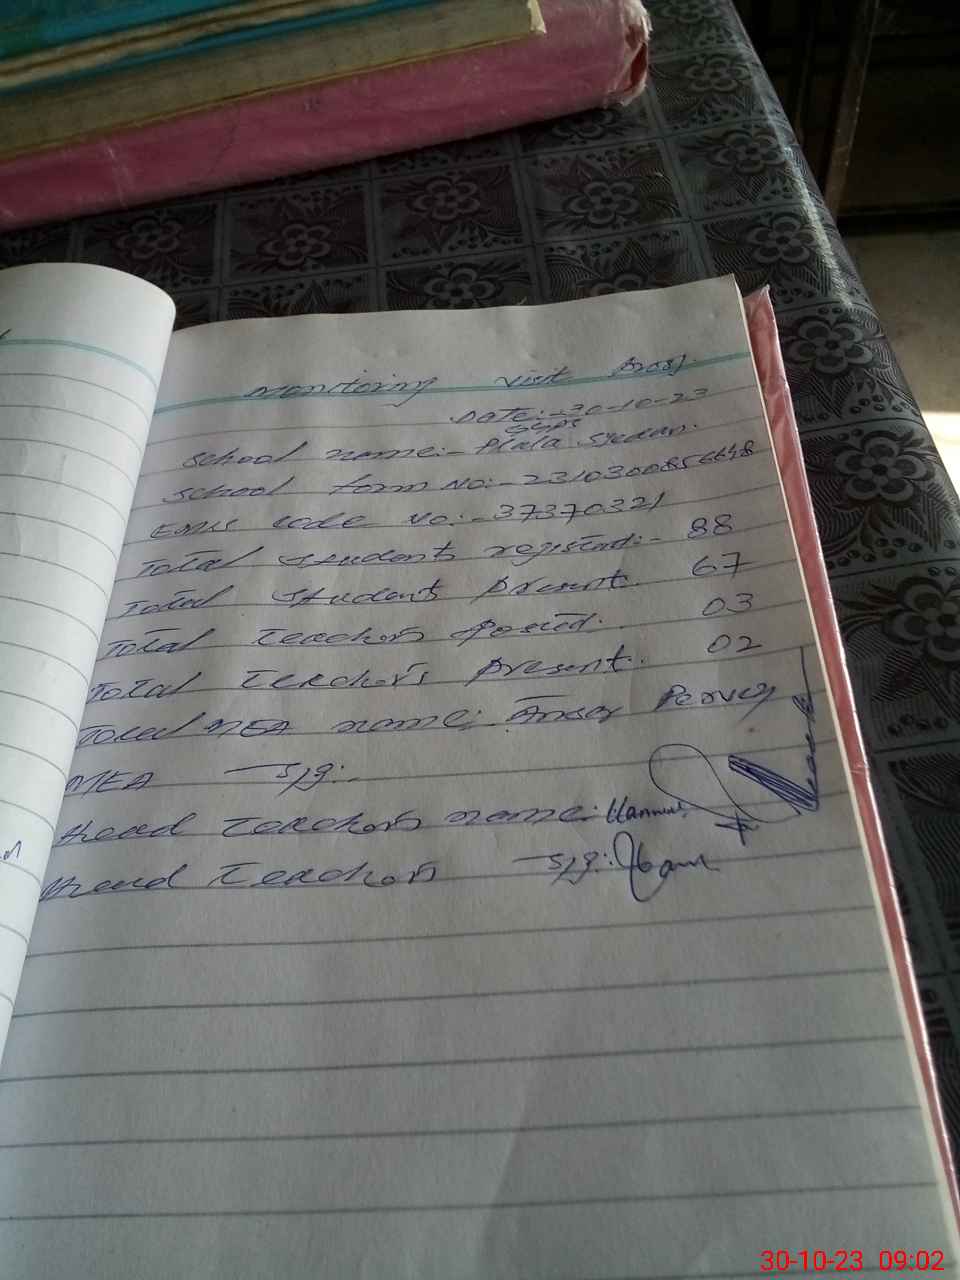 Monitoring visit
DATE:- 30-10-23
GGPS
School name:- Piala Syedan.
School form No:- 2310300856648
EMIS code No:- 37370321
Total Students registerd:- 88
Total Students present. 67
Total Teachers Posted. 03
Total Teachers present. 02
Total MEA name:- Ansar Pervez
MEA sig:-
Head Teachers name:
Head Teachers sig:
30-10-23 09:02